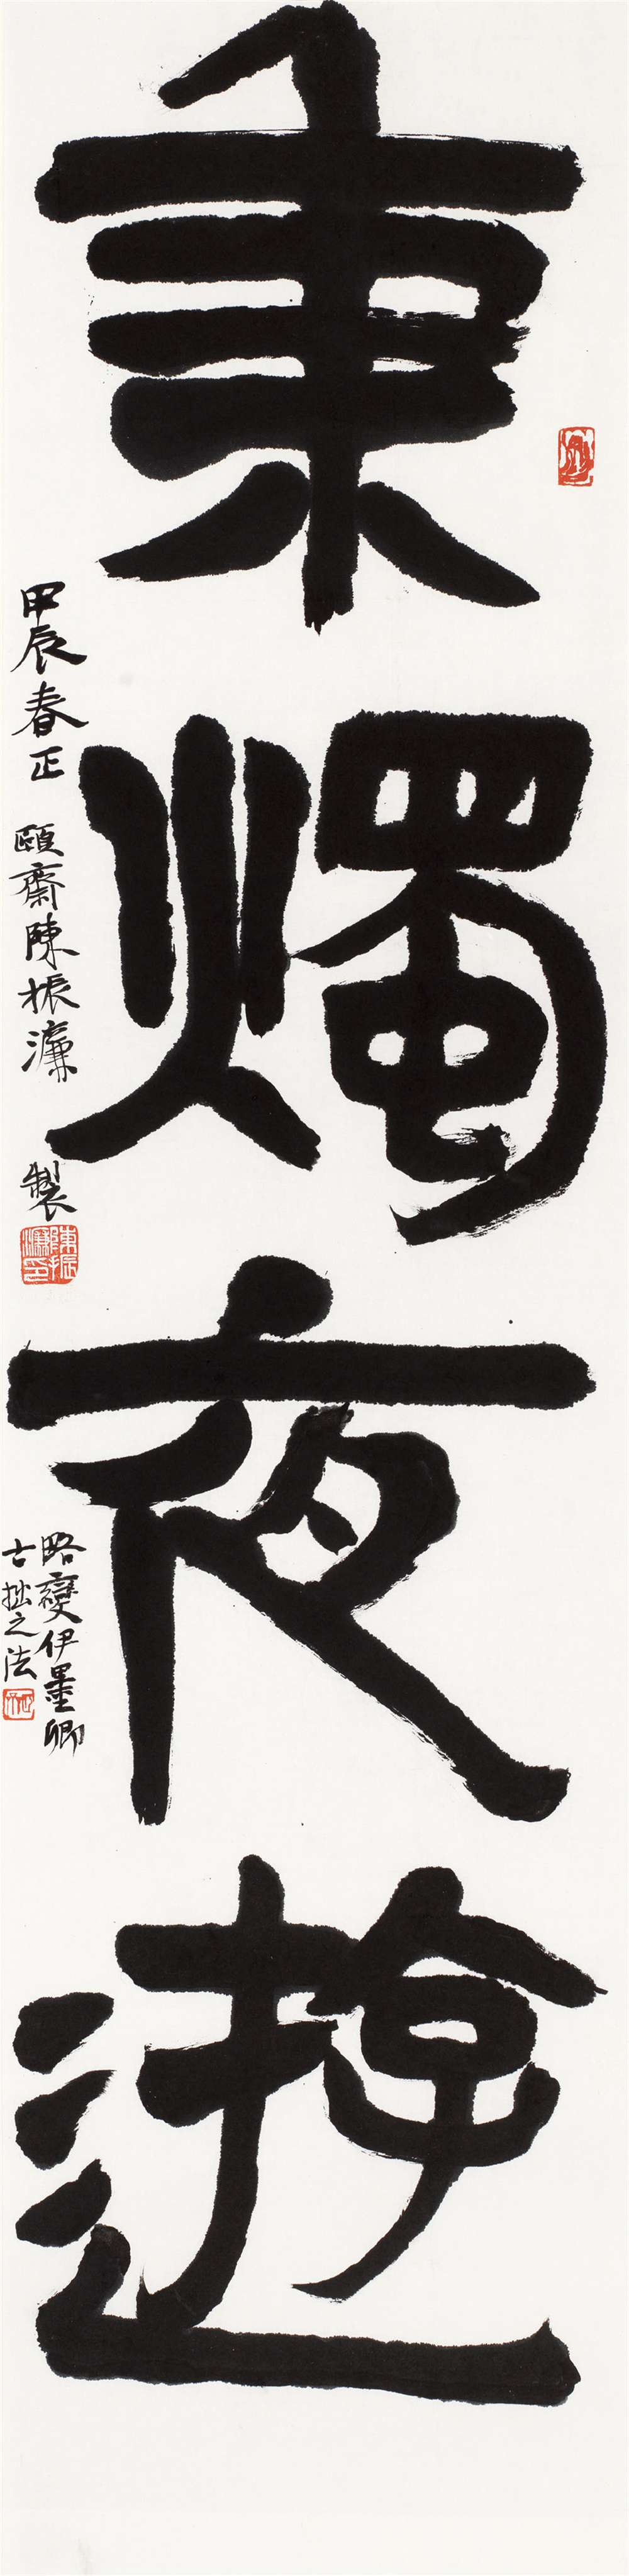 秉燭夜遊
甲辰春正 頤齋陳振濂 製
陳振濂印
略變伊墨卿
古拙之法